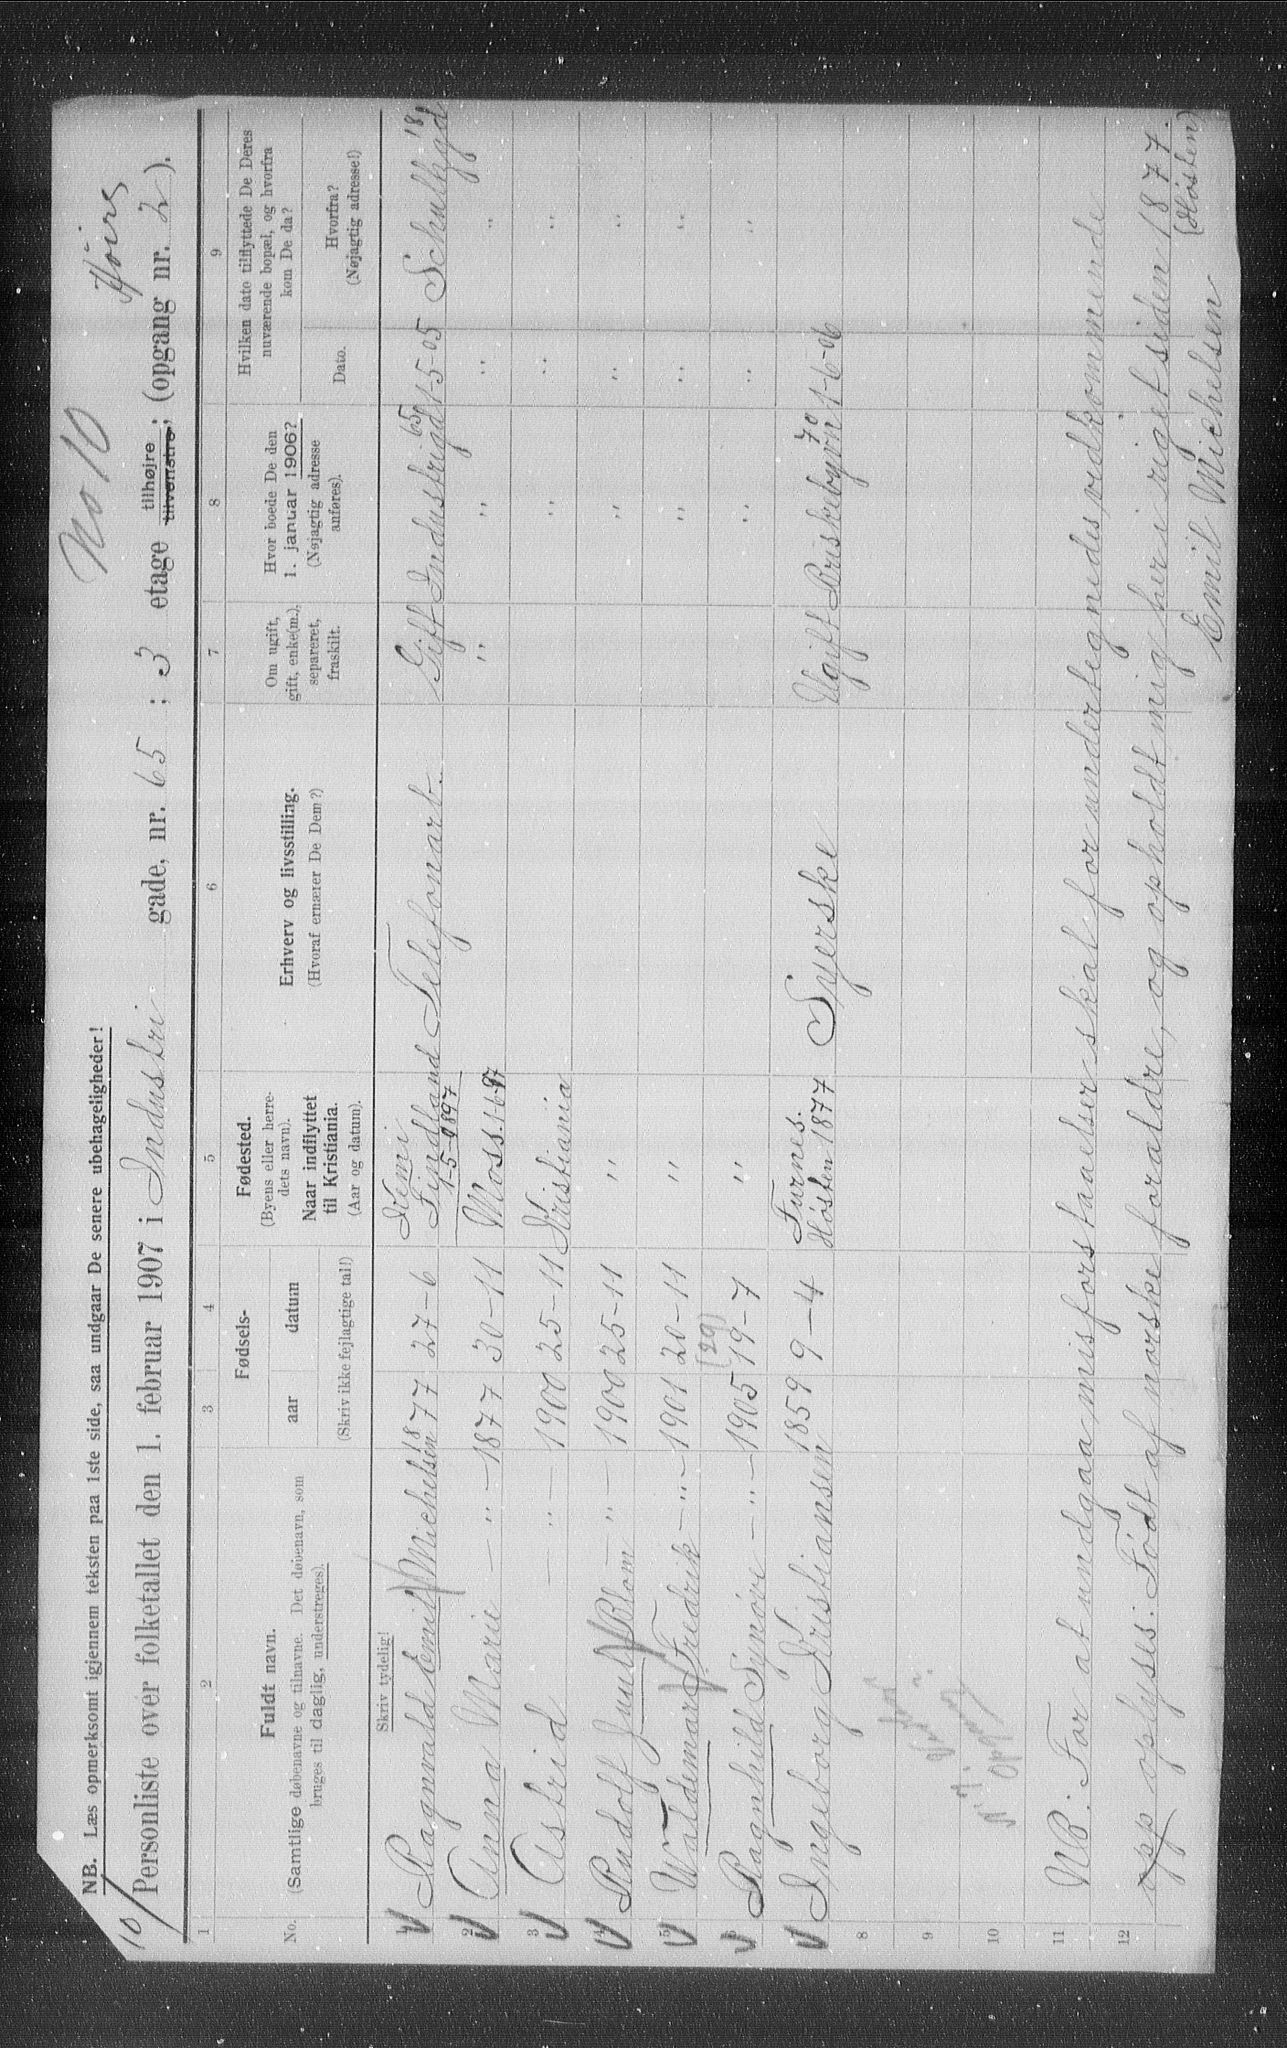 No 10
NB. Læs opmerksomt igjennem teksten paa 1ste side, saa undgaar De senere ubehageligheder!
10/
Personliste over folketallet den 1. februar 1907 i Industri gade, nr. 65 ; 3 etage tilhøjre tilvenstre; (opgang nr. 2 ).
1 2 3 4 5 6 7 8 9
No.
Fuldt navn.
(Samtlige døbenavne og tilnavne. Det døbenavn, som
bruges til daglig, understreges).
Fødsels-
aar datum
(Skriv ikke fejlagtige tal!)
Fødested.
(Byens eller herre-
dets navn).
Naar indflyttet
til Kristiania.
(Aar og datum).
Erhverv og livsstilling.
(Hvoraf ernærer De Dem?)
Om ugift,
gift, enke(m.),
separeret,
fraskilt.
Hvor boede De den
1. januar 1906?
(Nøjagtig adresse
anføres).
Hvilken dato tilflyttede De Deres
nuværende bopæl, og hvorfra
kom De da?
Dato.
Hvorfra?
(Nøjagtig adresse!)
Skriv tydelig!
1 Ragnvald Emil Michelsen 1877 27-6 Kemi Findland 1-5-1897 Telefonarb. Gift Industrigd 65 1-5-05 Schullzgd 18
2 Anna Marie — " — 1877 30-11 Moss. 1-6-97 " " " "
3 Astrid — " — 1900 25-11 Kristiania " " "
4 Rudolf Juul Blom — " — 1900 25-11 " " " "
5 Waldemar Fredrik — " — 1901 20-11 " " " "
(29)
6 Ragnhild Synöve — " — 1905 19-7 " " " "
7 Ingeborg Kristiansen 1859 9-4 Furnes. Høsten 1877 Syerske Ugift Briskebyvn 70 1-6-06
8
9
10
11 NB. For at undgaa misforstaaelser skal for undertegnedes vedkommende
12 opp oplyses: Födt af norske foraldre, og opholdt mig her i riget siden 1877.
(Høsten)
Emil Michelsen